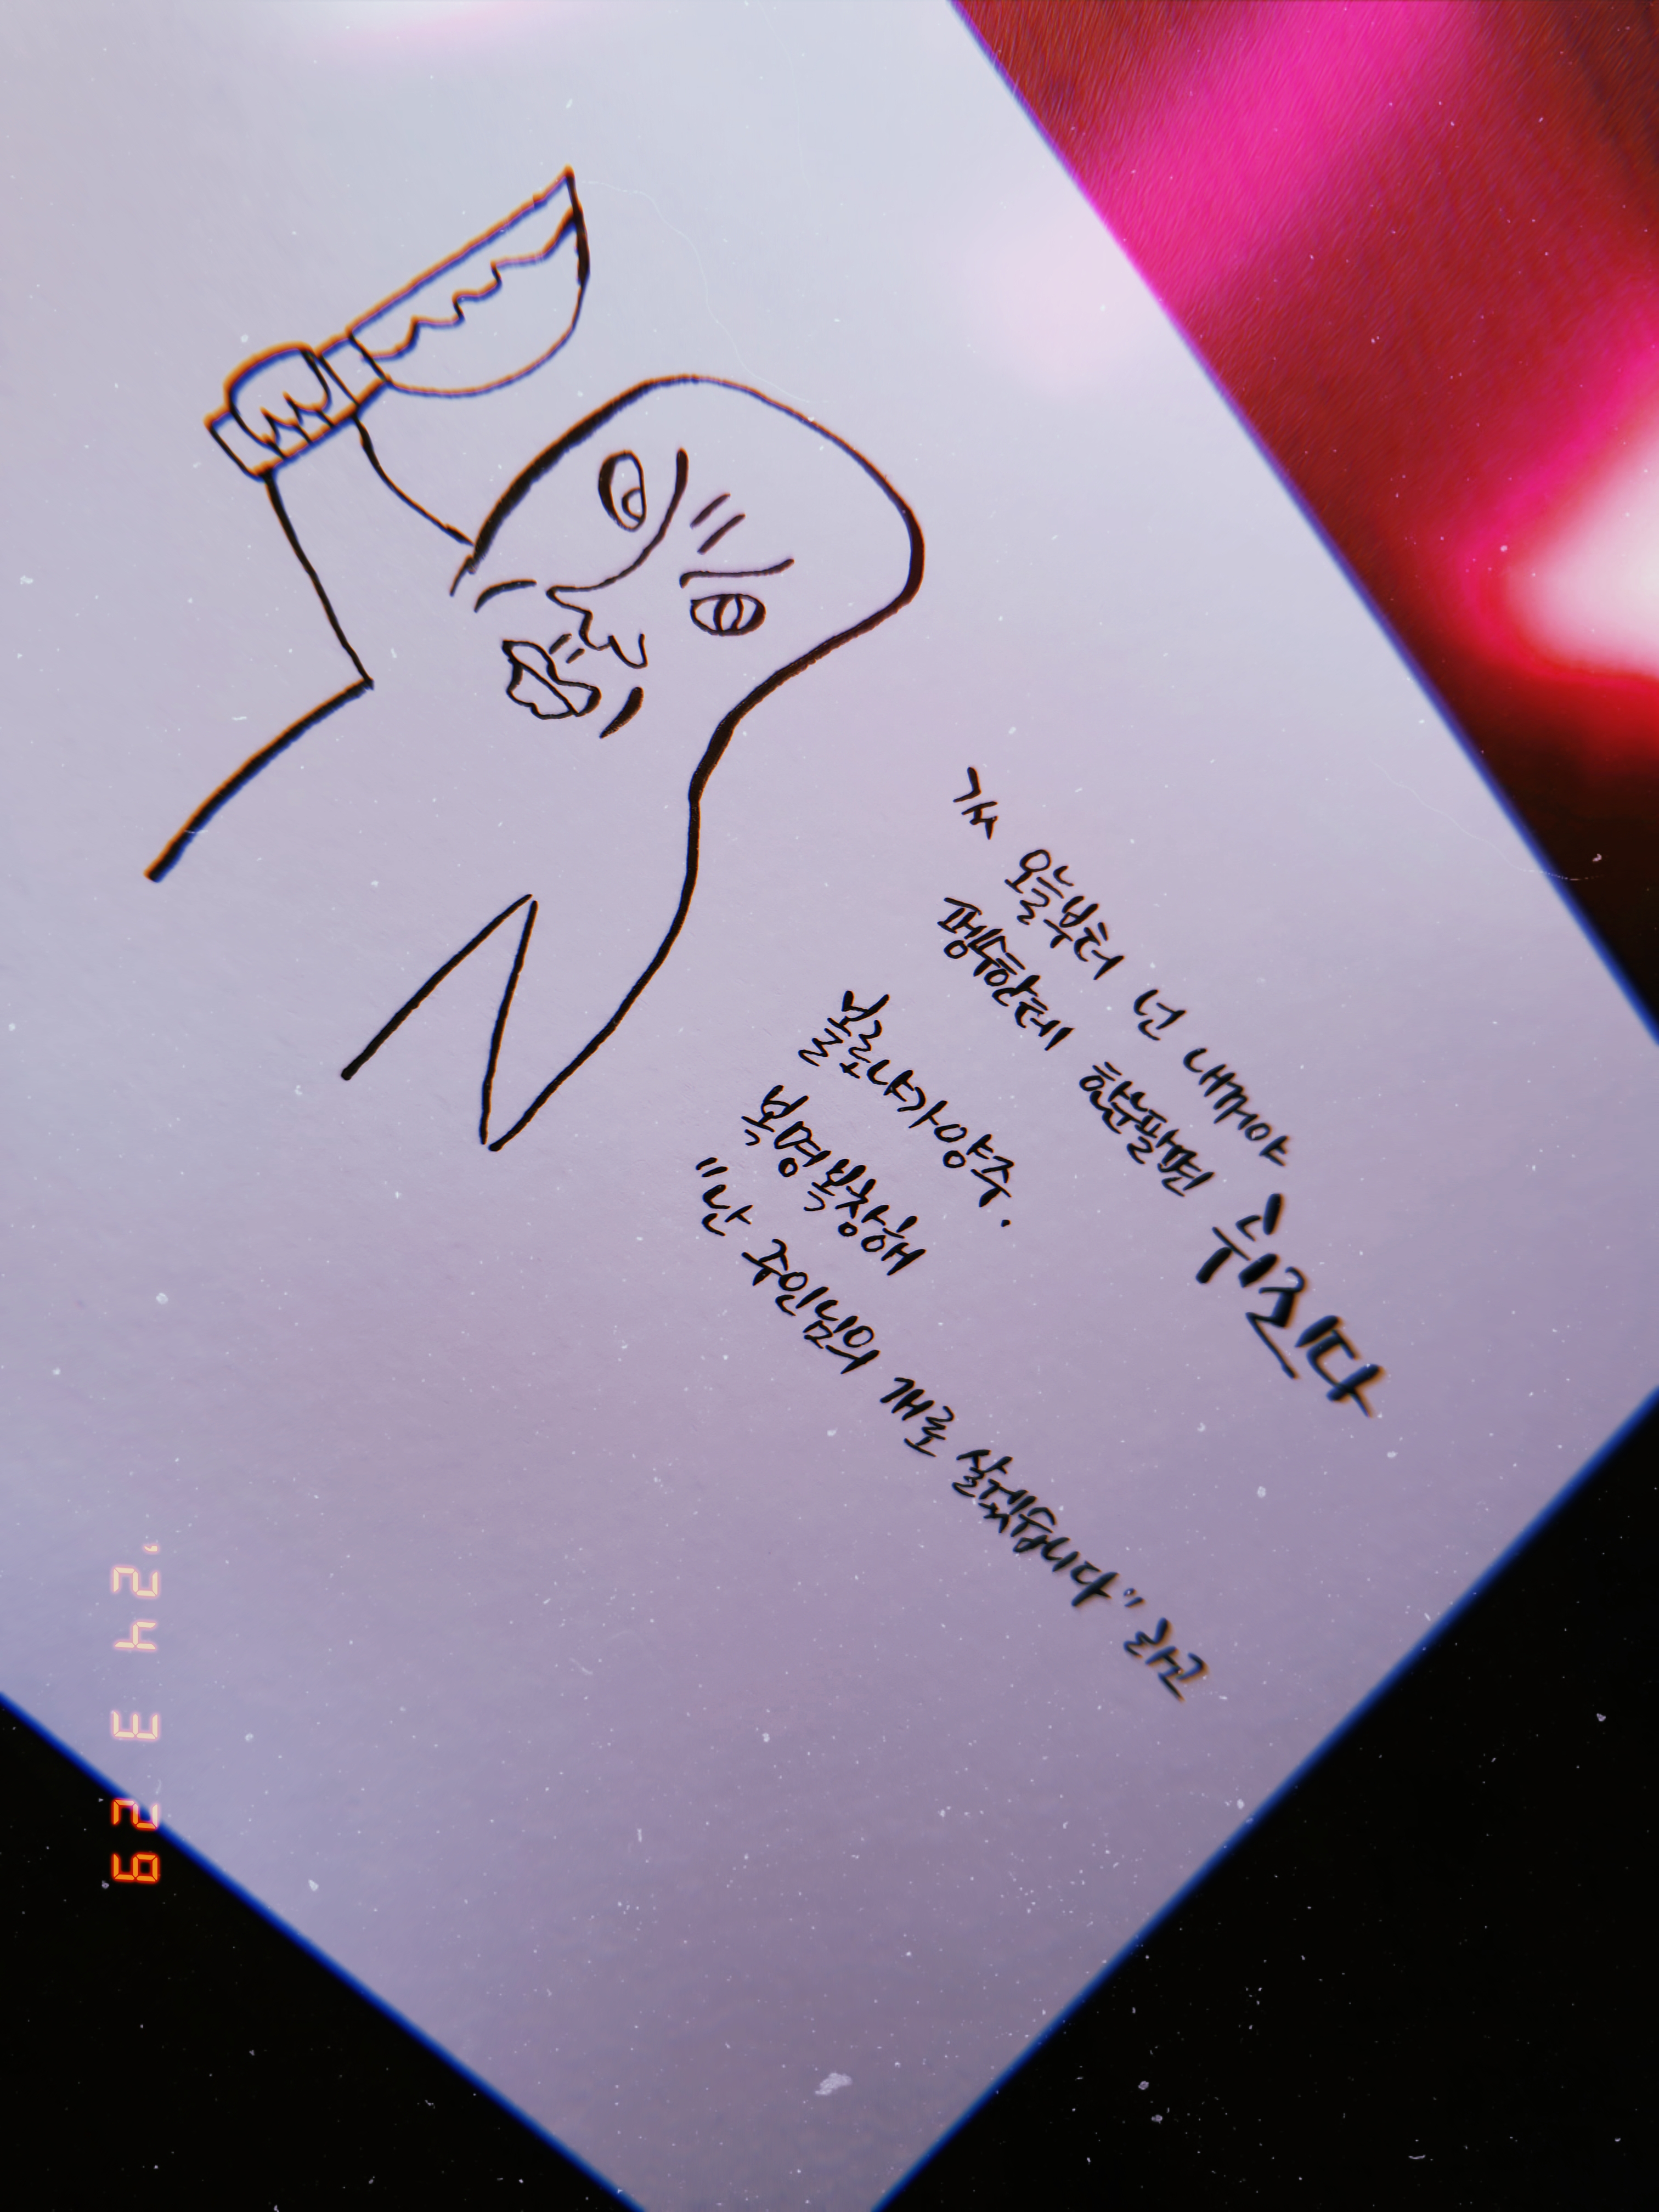 오늘부터 넌 내꺼야
펭수한테 한눈팔면 뒤진다
복명복창해
"난 주인님의 개로 살겠습니다" 라고
'24 3 29